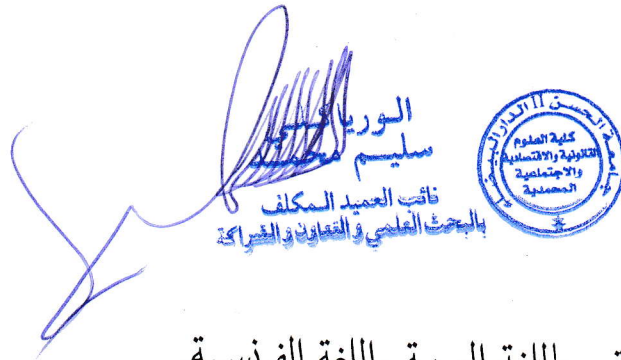 سليم محمد
نائب العميد المكلف
بالبحث العلمي والتعاون والشراكة
جامعة الحسن II الدار البيضاء
كلية العلوم
القانونية والاقتصادية
والاجتماعية
المحمدية
اللغة العربية اللغة الفرنسية